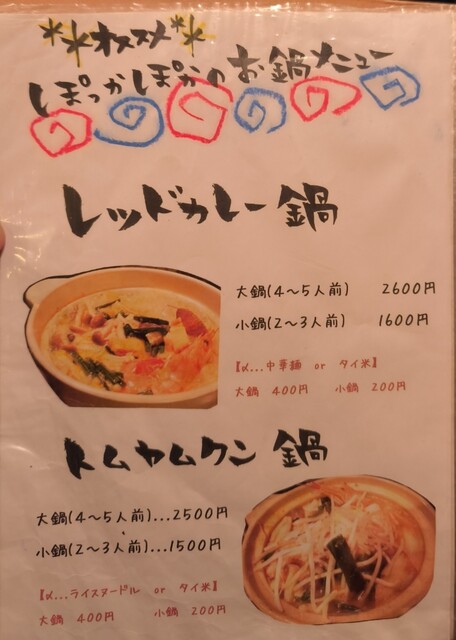 **オススメ**
ぽっかぽかのお鍋メニュー
レッドカレー鍋
大鍋(4〜5人前) 2600円
小鍋(2〜3人前) 1600円
【〆...中華麺 or タイ米】
大鍋 400円 小鍋 200円
トムヤムクン鍋
大鍋(4〜5人前)...2500円
小鍋(2〜3人前)...1500円
【〆...ライスヌードル or タイ米】
大鍋 400円 小鍋 200円